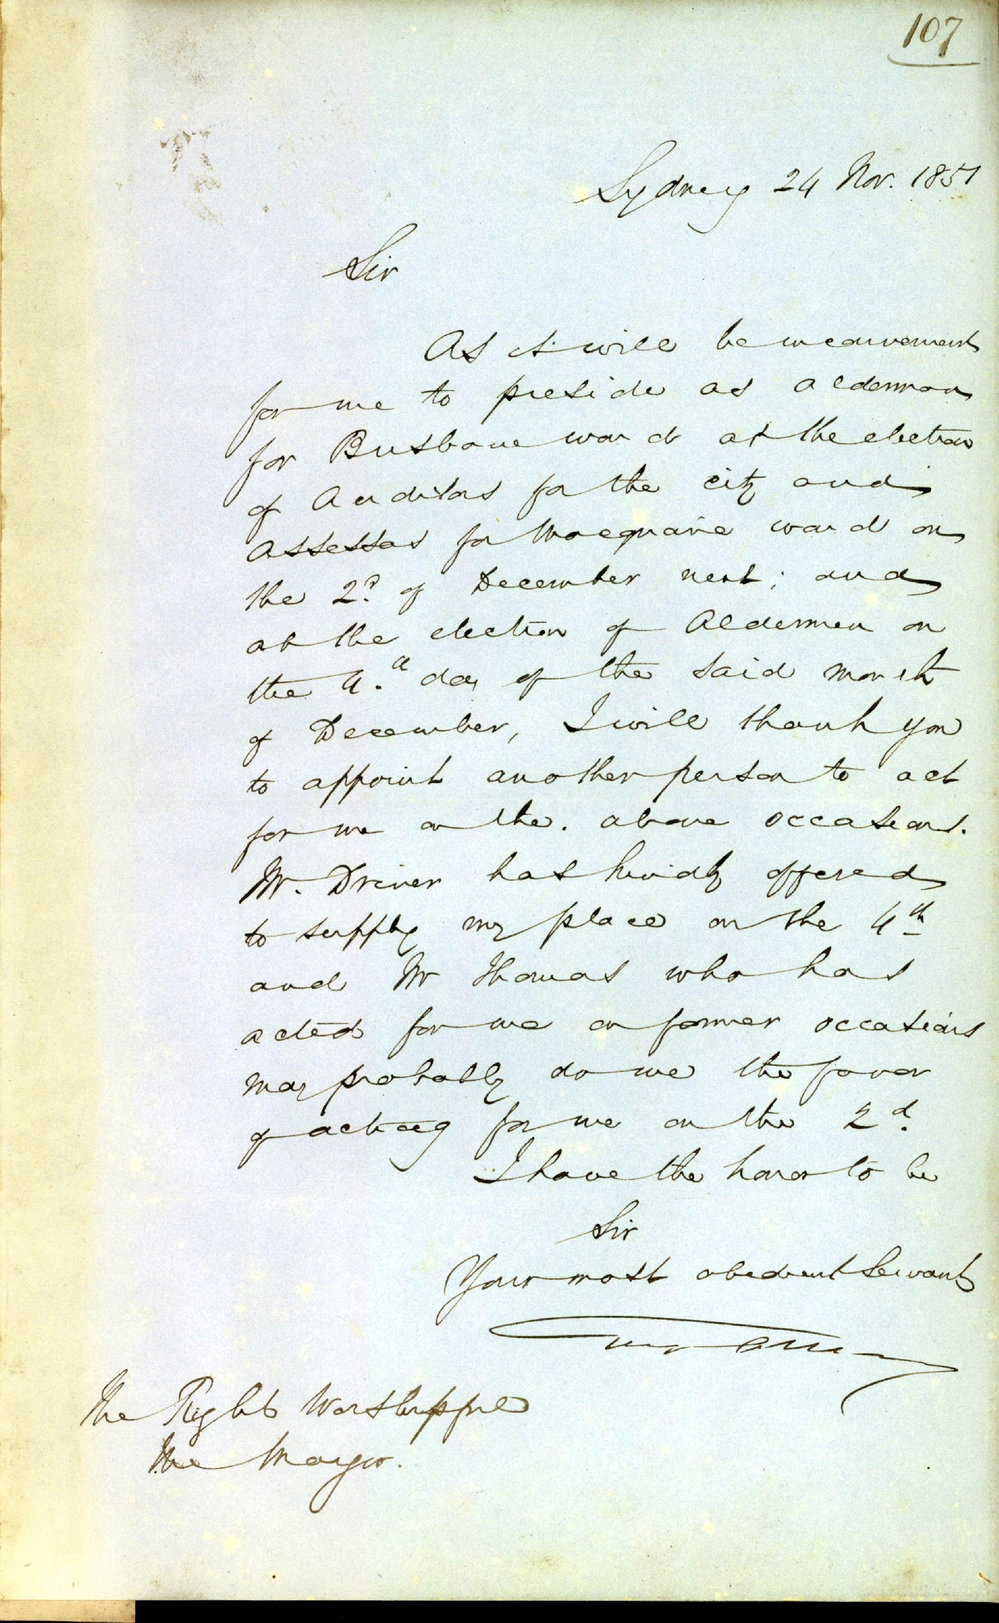 107
Sydney 24 Nov. 1851
Sir
As it will be inconvenient
for me to preside as Alderman
for Brisbane ward at the election
of Auditors for the city and
Assessors for Macquarie ward on
the 2d of December next; and
at the election of Aldermen on
the 4.th day of the said month
of December, I will thank you
to appoint another person to act
for me on the above occasions.
Mr. Driver has kindly offered
to supply my place on the 4th
and Mr Thomas who has
acted for me on former occasions
may probably do me the favor
of acting for me on the 2d.
I have the honor to be
Sir
Your most obedient Servant
The Right Worshipful
The Mayor.